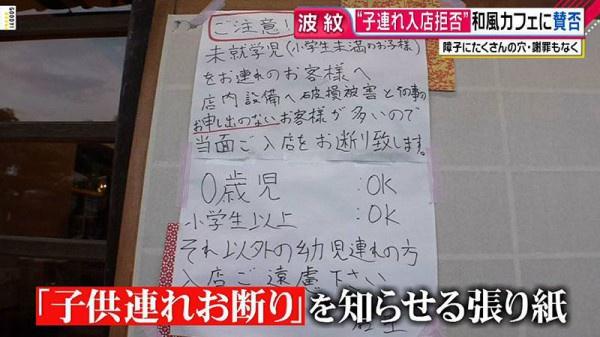 GOODAY!
波紋
"子連れ入店拒否"和風カフェに賛否
障子にたくさんの穴・謝罪もなく
ご注意!
未就学児(小学生未満のお子様)
をお連れのお客様へ
店内設備へ破損被害と何事の
お申し出のないお客様が多いので
当面ご入店をお断り致します。
0歳児 :OK
小学生以上 :OK
それ以外の幼児連れの方
入店ご遠慮下さい
「子供連れお断り」を知らせる張り紙